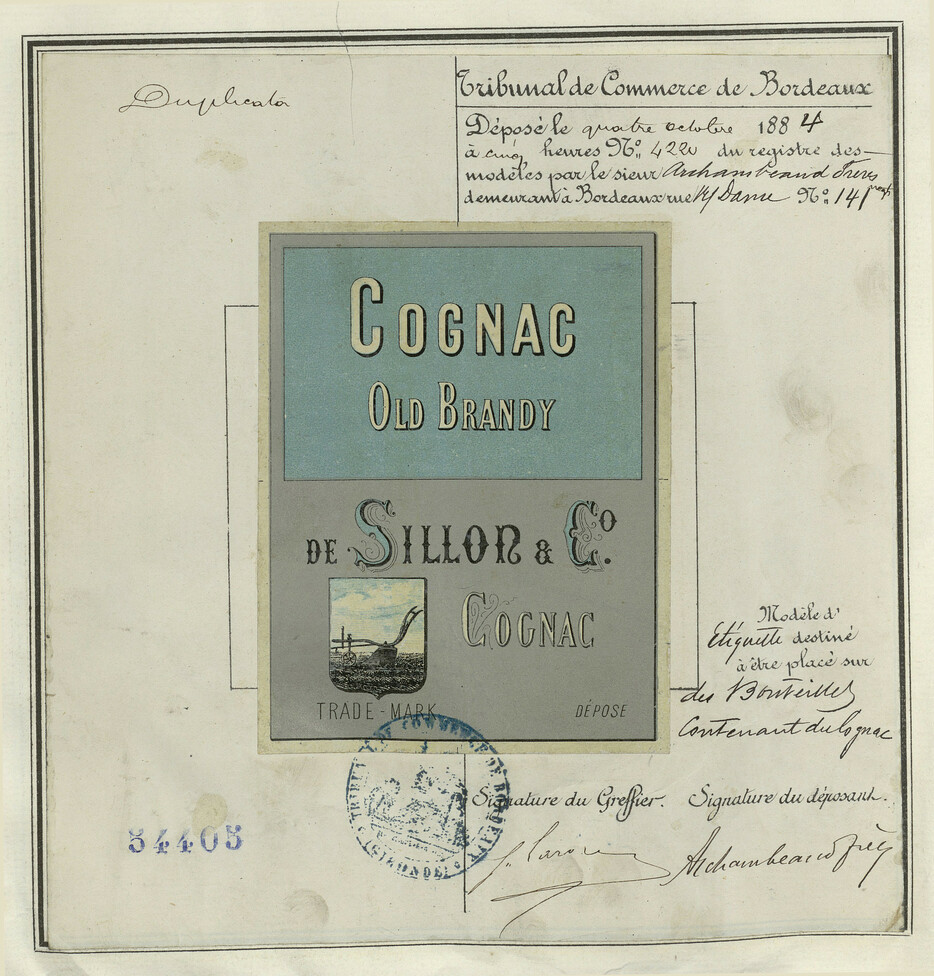 Duplicata
Tribunal de Commerce de Bordeaux
Déposé le quatre octobre 1884
à cinq heures No. 4220 du registre des
modèles par le sieur Archambeaud Frères
demeurant à Bordeaux rue Dame No. 141
COGNAC
OLD BRANDY
DE SILLON & Co.
COGNAC
TRADE-MARK
DÉPOSE
Modèle d'
Etiquette destiné
à être placé sur
des Bouteilles
Contenant du Cognac
TRIBUNAL DE COMMERCE DE BORDEAUX
(GIRONDE)
Signature du Greffier. Signature du déposant.
Archambeaud Frères
54405